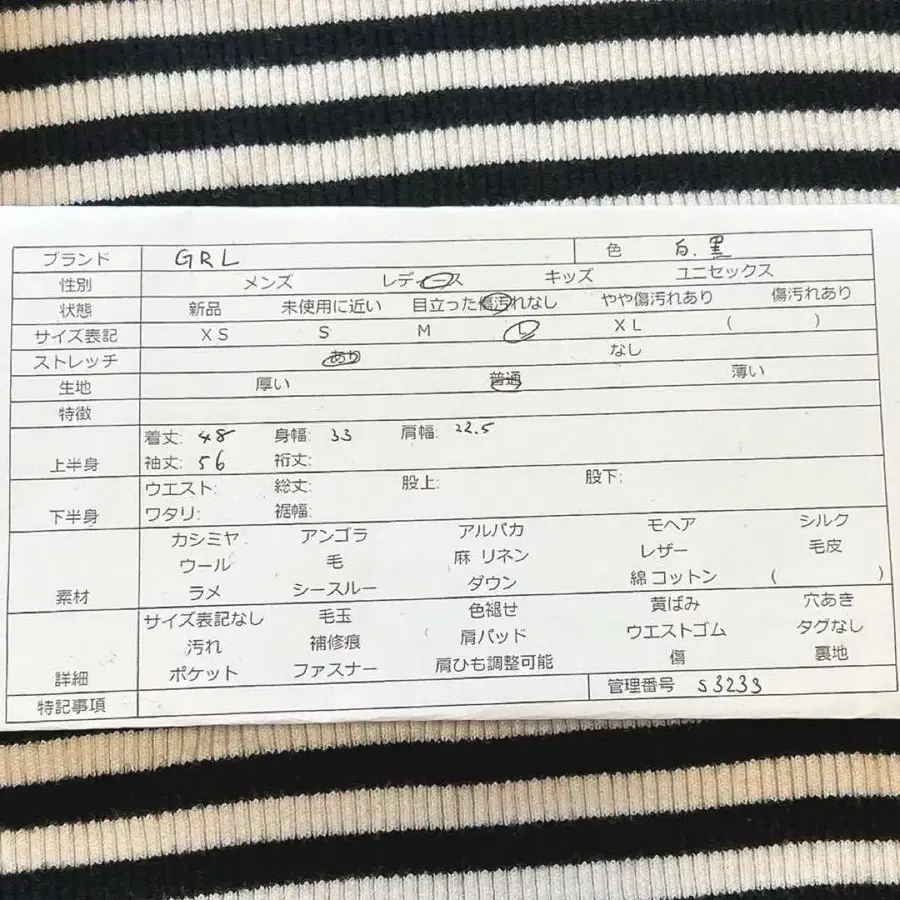 ブランド GRL 色 白.黒
性別 メンズ レディース キッズ ユニセックス
状態 新品 未使用に近い 目立った傷汚れなし やや傷汚れあり 傷汚れあり
サイズ表記 XS S M L XL ( )
ストレッチ あり なし
生地 厚い 普通 薄い
特徴
上半身 着丈: 48 身幅: 33 肩幅: 22.5
袖丈: 56 裄丈:
下半身 ウエスト: 総丈: 股上: 股下:
ワタリ: 裾幅:
素材 カシミヤ アンゴラ アルパカ モヘア シルク
ウール 毛 麻 リネン レザー 毛皮
ラメ シースルー ダウン 綿 コットン ( )
詳細 サイズ表記なし 毛玉 色褪せ 黄ばみ 穴あき
汚れ 補修痕 肩パッド ウエストゴム タグなし
ポケット ファスナー 肩ひも調整可能 傷 裏地
特記事項 管理番号 S3233